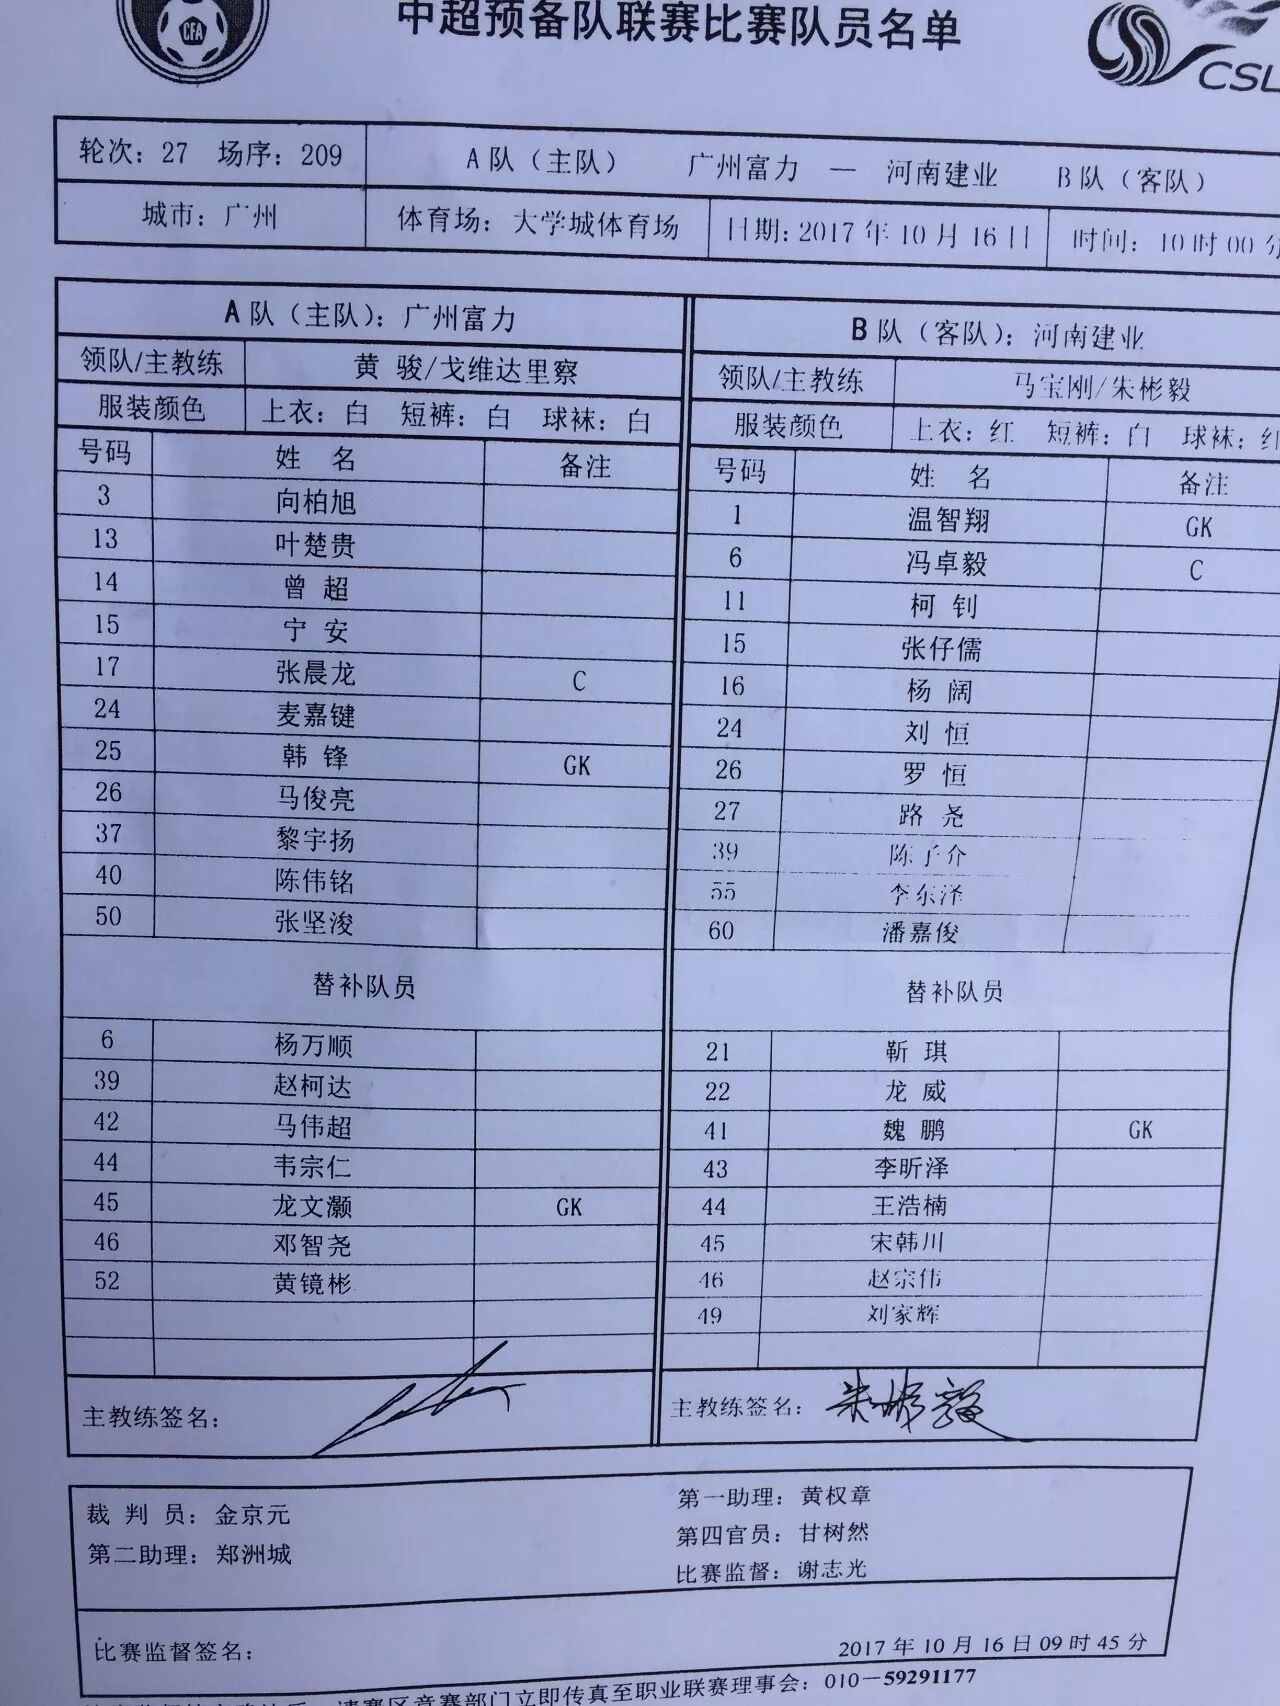 CFA
中超预备队联赛比赛队员名单
CSL
轮次：27 场序：209 A 队（主队） 广州富力 — 河南建业 B 队（客队）
城市：广州 体育场：大学城体育场 日期：2017 年 10 月 16 日 时间：10 时 00 分
A 队（主队）：广州富力
领队/主教练 黄 骏/戈维达里察
服装颜色 上衣：白 短裤：白 球袜：白
号码 姓 名 备注
3 向柏旭
13 叶楚贵
14 曾 超
15 宁 安
17 张晨龙 C
24 麦嘉键
25 韩 锋 GK
26 马俊亮
37 黎宇扬
40 陈伟铭
50 张坚浚
替补队员
6 杨万顺
39 赵柯达
42 马伟超
44 韦宗仁
45 龙文灏 GK
46 邓智尧
52 黄镜彬
主教练签名：
B 队（客队）：河南建业
领队/主教练 马宝刚/朱彬毅
服装颜色 上衣：红 短裤：白 球袜：红
号码 姓 名 备注
1 温智翔 GK
6 冯卓毅 C
11 柯 钊
15 张仔儒
16 杨 阔
24 刘 恒
26 罗 恒
27 路 尧
39 陈子介
55 李东泽
60 潘嘉俊
替补队员
21 靳 琪
22 龙 威
41 魏 鹏 GK
43 李昕泽
44 王浩楠
45 宋韩川
46 赵宗伟
49 刘家辉
主教练签名：朱彬毅
裁 判 员：金京元 第一助理：黄权章
第二助理：郑洲城 第四官员：甘树然
比赛监督：谢志光
比赛监督签名：
2017 年 10 月 16 日 09 时 45 分
请赛区竞赛部门立即传真至职业联赛理事会：010—59291177